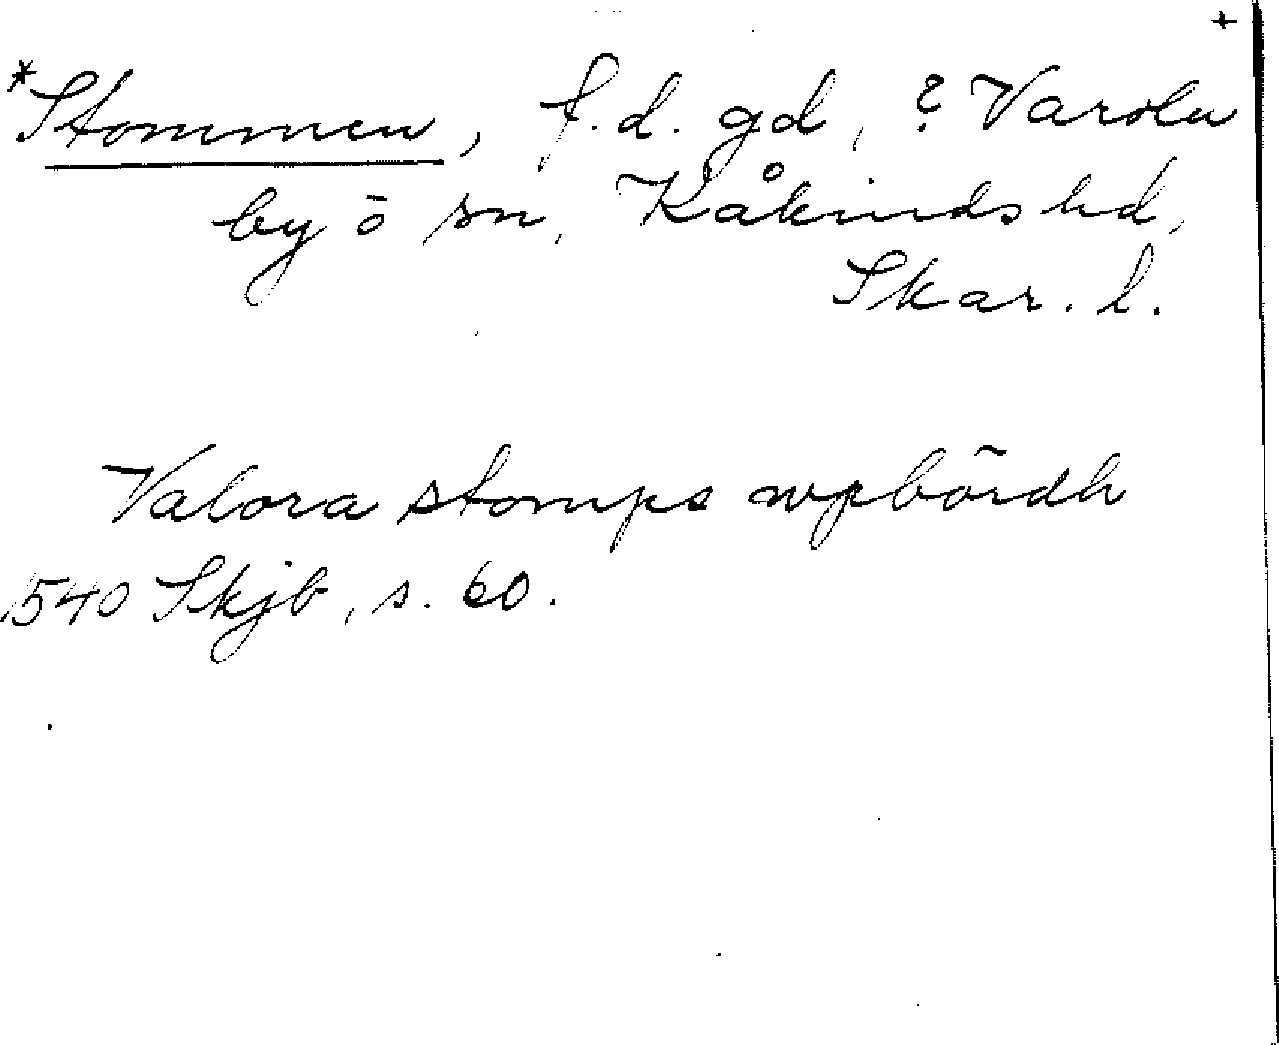 +
*Stommen, f.d. gd, ? Varola
by o sn, Kåkinds hd,
Skar. l.
Valora stomps wpbördh
1540 Skjb, s. 60.